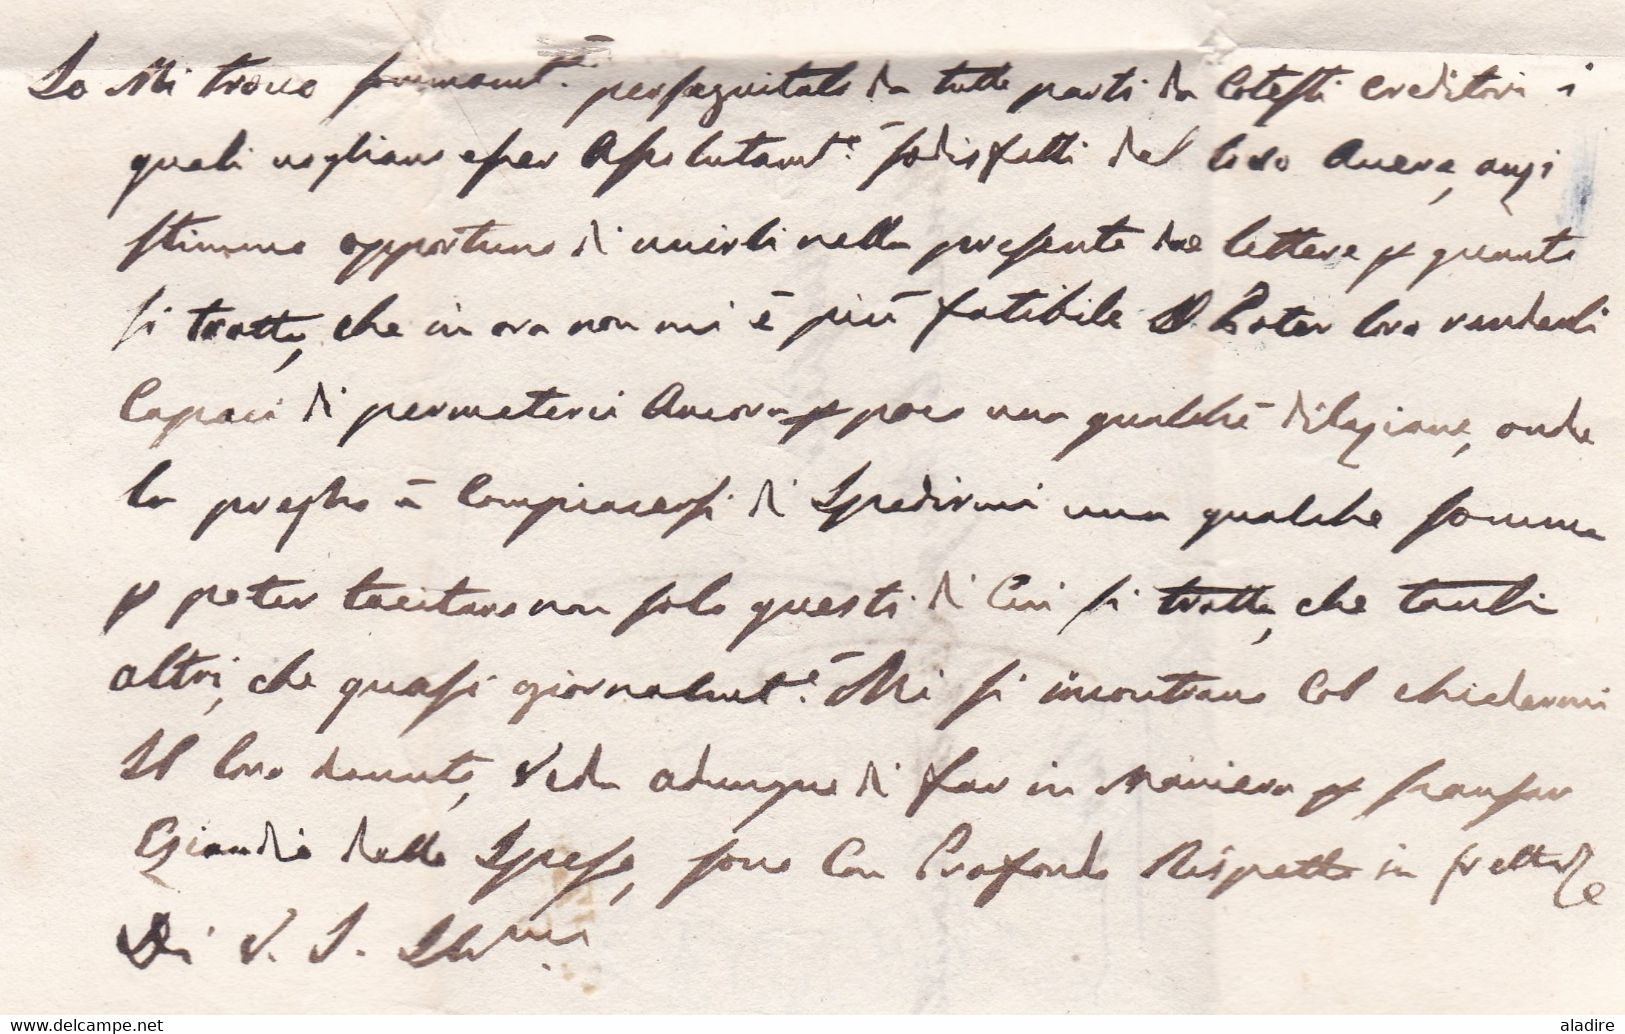 Io Mi trovo sommamte. perseguitato da tutte parti da Cotesti Creditori i
quali vogliono esser Assolutamte. sodisfatti del loro Avere, anzi
stimmo opportuno di unirli nella presente due lettere p quanto
si tratta, che in ora non mi è più fatibile Poter loro renderli
Capaci di permeterci Ancora p poco una qualche dilazione, onde
la prego à Compiacersi di Spedirmi una qualche somma
p poter tacitare non solo questi di Cui si tratta, che tanti
altri, che quasi giornalmte. Mi si incontrano Col chiedermi
Il loro davuto, Veda adunque di far in Maniera p
delle Spese, sono Con Profondo Rispetto in fretta
Di V. S. Illma.
aladire
www.delcampe.net